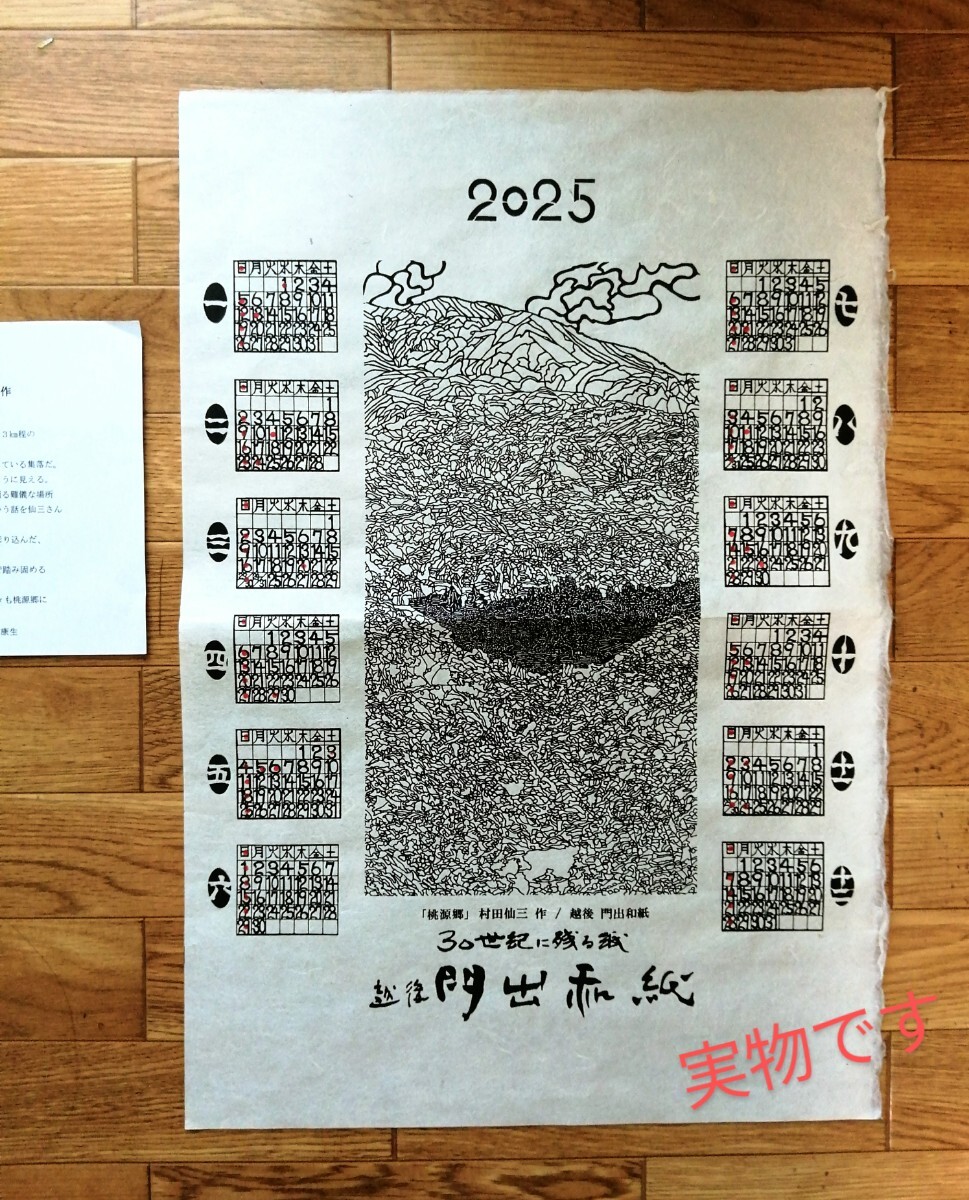 2025
一
日月火水木金土
1 2 3 4
5 6 7 8 9 10 11
12 13 14 15 16 17 18
19 20 21 22 23 24 25
26 27 28 29 30 31
二
日月火水木金土
1
2 3 4 5 6 7 8
9 10 11 12 13 14 15
16 17 18 19 20 21 22
23 24 25 26 27 28
三
日月火水木金土
1
2 3 4 5 6 7 8
9 10 11 12 13 14 15
16 17 18 19 20 21 22
25 26 27 28 29
四
日月火水木金土
1 2 3 4 5
6 7 8 9 10 11 12
13 14 15 16 17 18 19
20 21 22 23 24 25 26
27 28 29 30
五
日月火水木金土
1 2 3
4 5 6 7 8 9 10
11 12 13 14 15 16 17
18 19 20 21 22 23 24
25 26 27 28 29 30 31
六
日月火水木金土
1 2 3 4 5 6 7
8 9 10 11 12 13 14
15 16 17 18 19 20 21
22 23 24 25 26 27 28
29 30
七
日月火水木金土
1 2 3 4 5
6 7 8 9 10 11 12
13 14 15 16 17 18 19
20 21 22 23 24 25 26
27 28 29 30 31
八
日月火水木金土
1 2
3 4 5 6 7 8 9
10 11 12 13 14 15 16
17 18 19 20 21 22 23
25 26 27 28 29 30
九
日月火水木金土
1 2 3 4 5 6
7 8 9 10 11 12 13
14 15 16 17 18 19 20
21 22 23 24 25 26 27
28 29 30
十
日月火水木金土
1 2 3 4
5 6 7 8 9 10 11
12 13 14 15 16 17 18
19 20 21 22 23 24 25
26 27 28 29 30 31
十一
日月火水木金土
1
2 3 4 5 6 7 8
9 10 11 12 13 14 15
16 17 18 19 20 21 22
24 25 26 27 28 29
十二
日月火水木金土
1 2 3 4 5 6
7 8 9 10 11 12 13
14 15 16 17 18 19 20
21 22 23 24 25 26 27
28 29 30 31
「桃源郷」 村田仙三 作 / 越後 門出和紙
30世紀に残る紙
越後 門出和紙
実物です
作
3㎞程の
ている集落だ。
うに見える。
る難儀な場所
う話を仙三さん
り込んだ、
踏み固める
も桃源郷に
康生